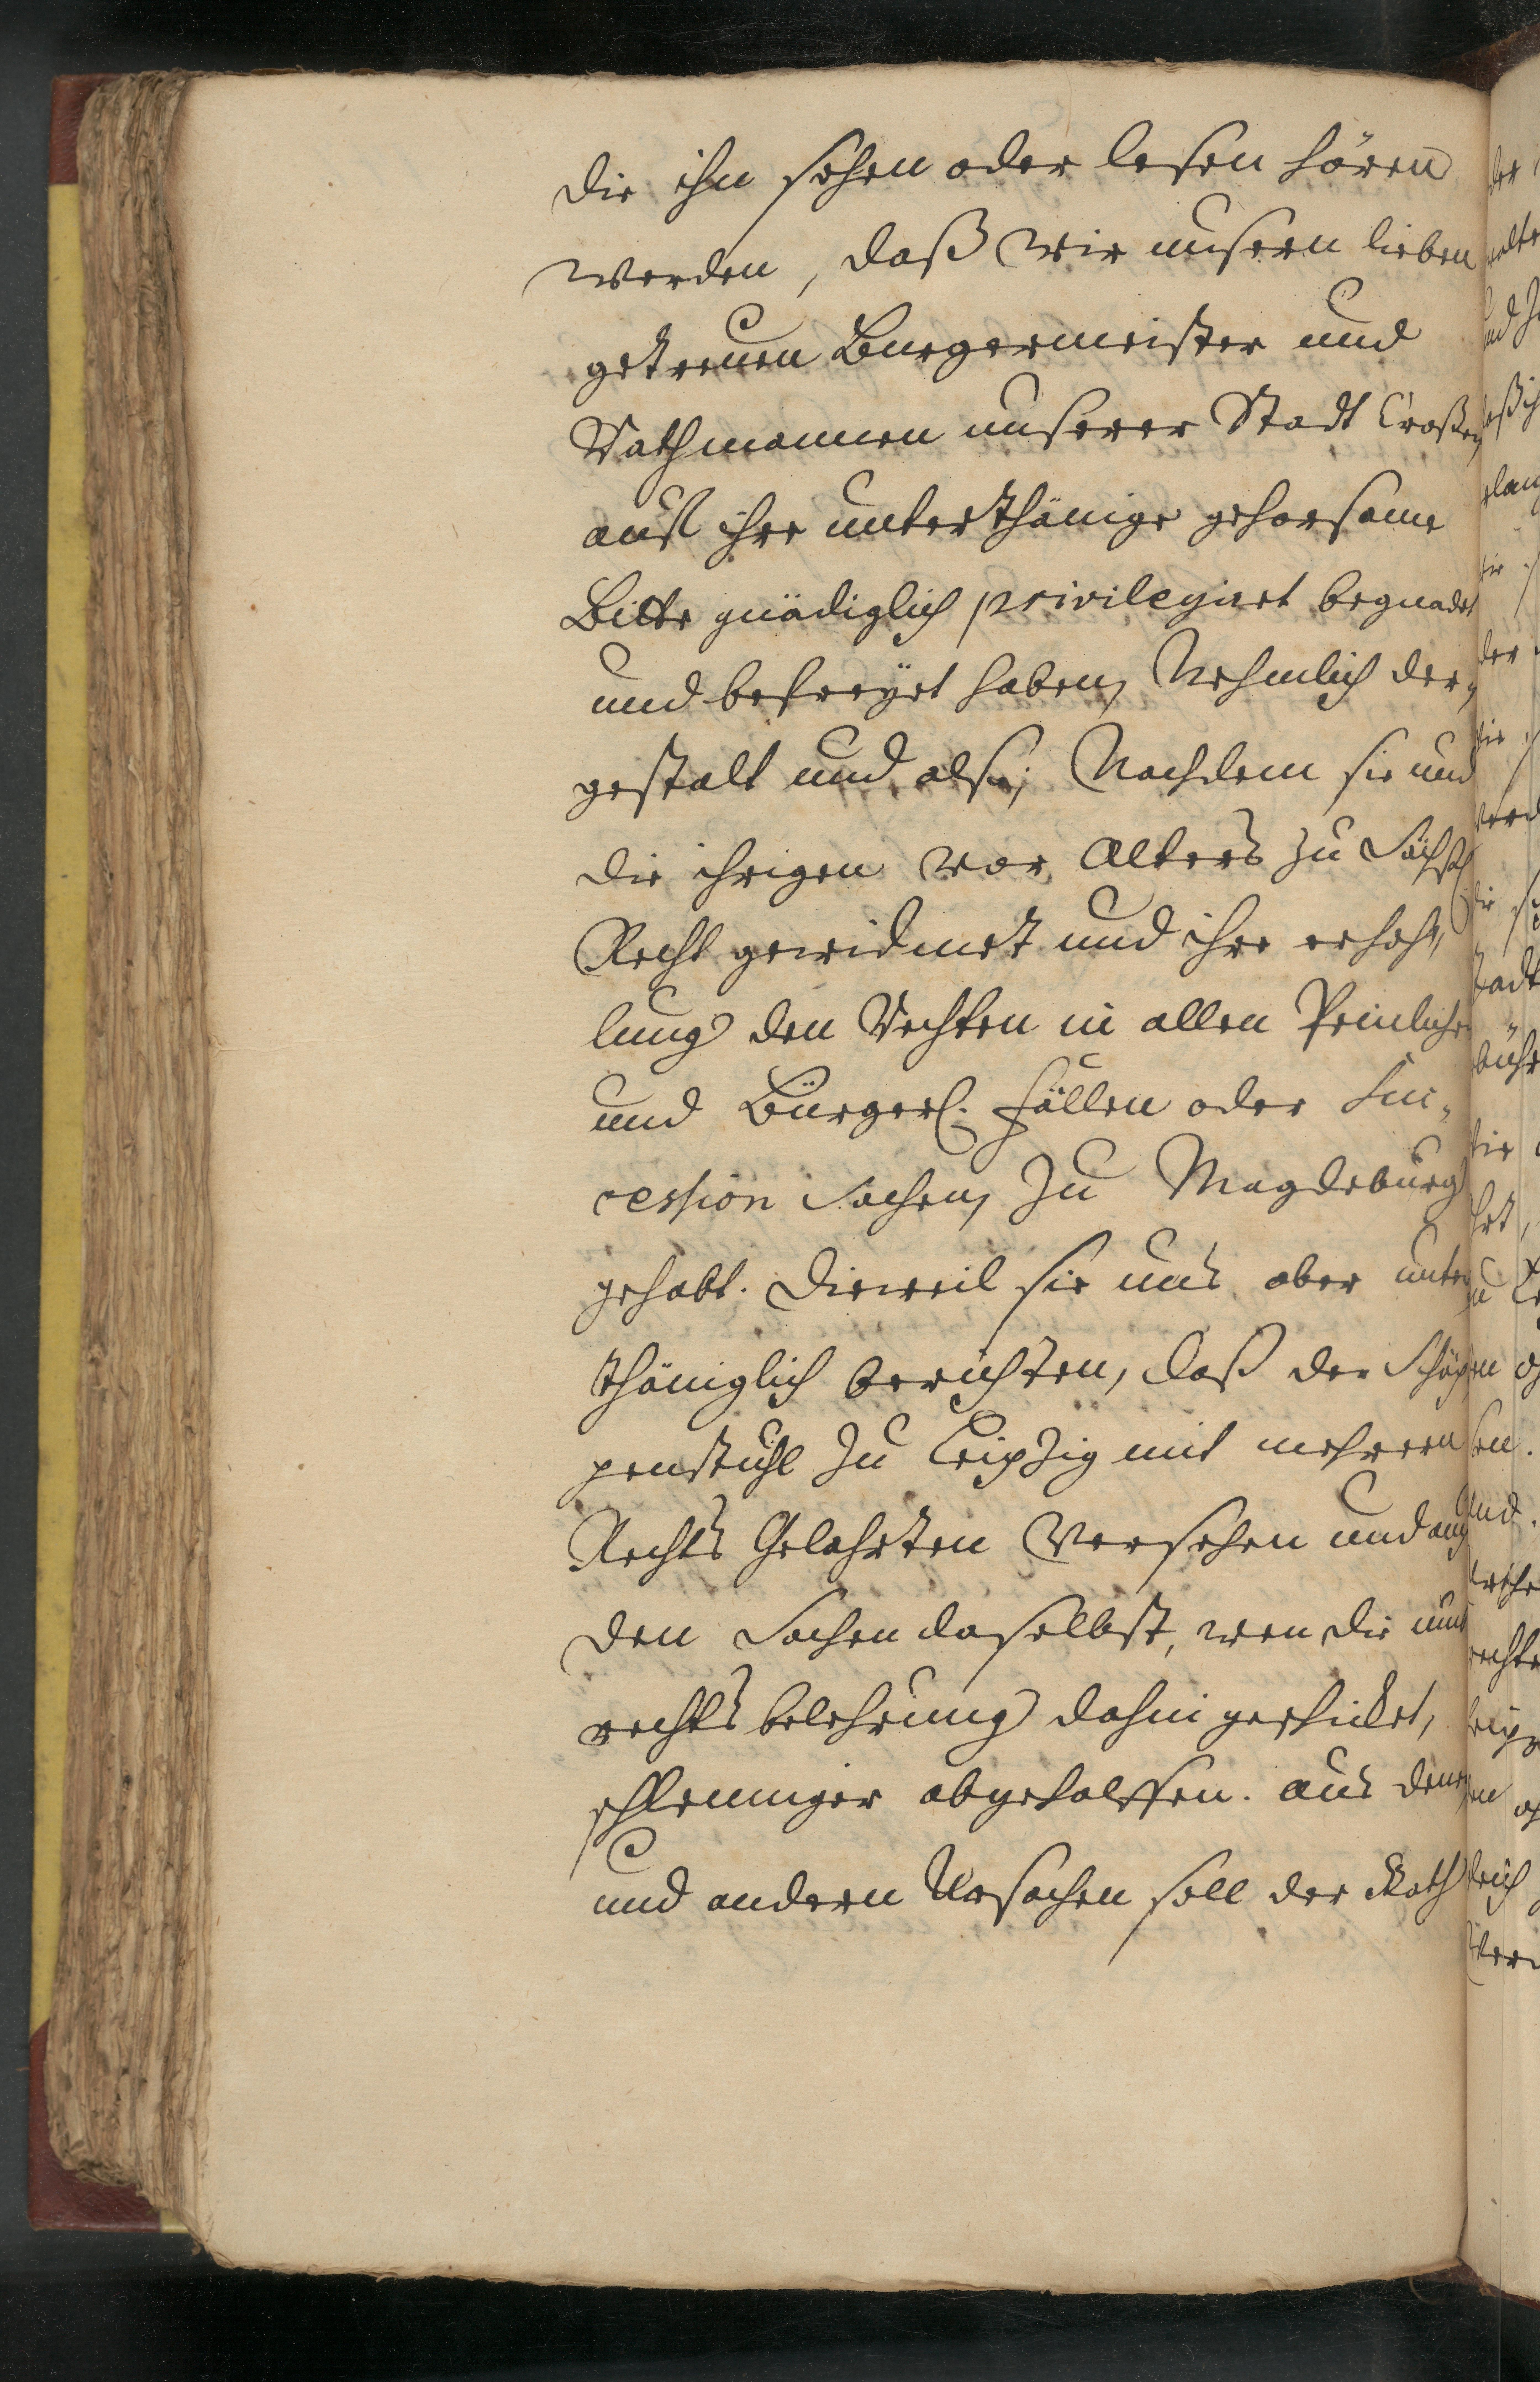 die ihn sehen oder lesen hören
werden, daß wir unsern lieben
getreuen Burgermeister und
Rathmannen unserer Stadt Croßen
auf ihre unterthänige gehorsame
Bitte gnädiglich privilegiret begnadet
und befreyet haben, Nehmlich der„
gestalt und also; Nachdem sie und
die ihrigen vor Alters zu Sächsch
Recht gewidmet und ihre erhoh„
lung den Rechten in allen Peinliche
und Bürgerl. Fällen oder Suc„
cession Sachen, zu Magdeburg
gehabt. Dieweil sie uns aber unter
thäniglich berichten, daß der Schöp
penstuhl zu Leipzig mit mehrern
Rechts Gelahrten versehen und auch
den Sachen daselbst, wen die umb
rechts belehrung dahin geschicket,
schleuniger abgeholffen. aus denen
und andern Ursachen soll der Rath